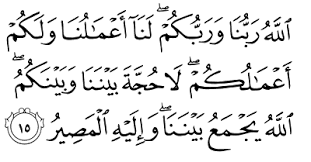 ٱللَّهُ رَبُّنَا وَرَبُّكُمْ ۖ لَنَآ أَعْمَٰلُنَا وَلَكُمْ
أَعْمَٰلُكُمْ ۖ لَا حُجَّةَ بَيْنَنَا وَبَيْنَكُمُ ۖ
ٱللَّهُ يَجْمَعُ بَيْنَنَا ۖ وَإِلَيْهِ ٱلْمَصِيرُ ١٥